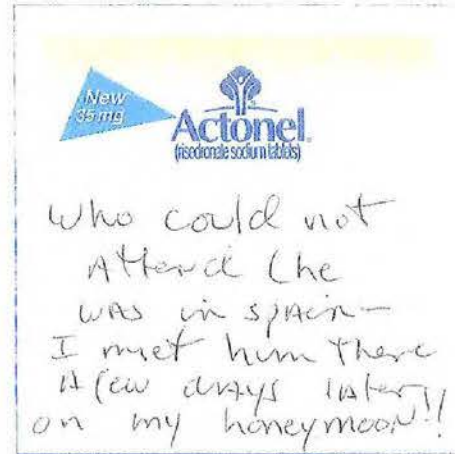 New
35 mg
Actonel®
(risedronate sodium tablets)
Who could not
Attend (he
was in spain-
I met him there
A few days later,
on my honeymoon!!